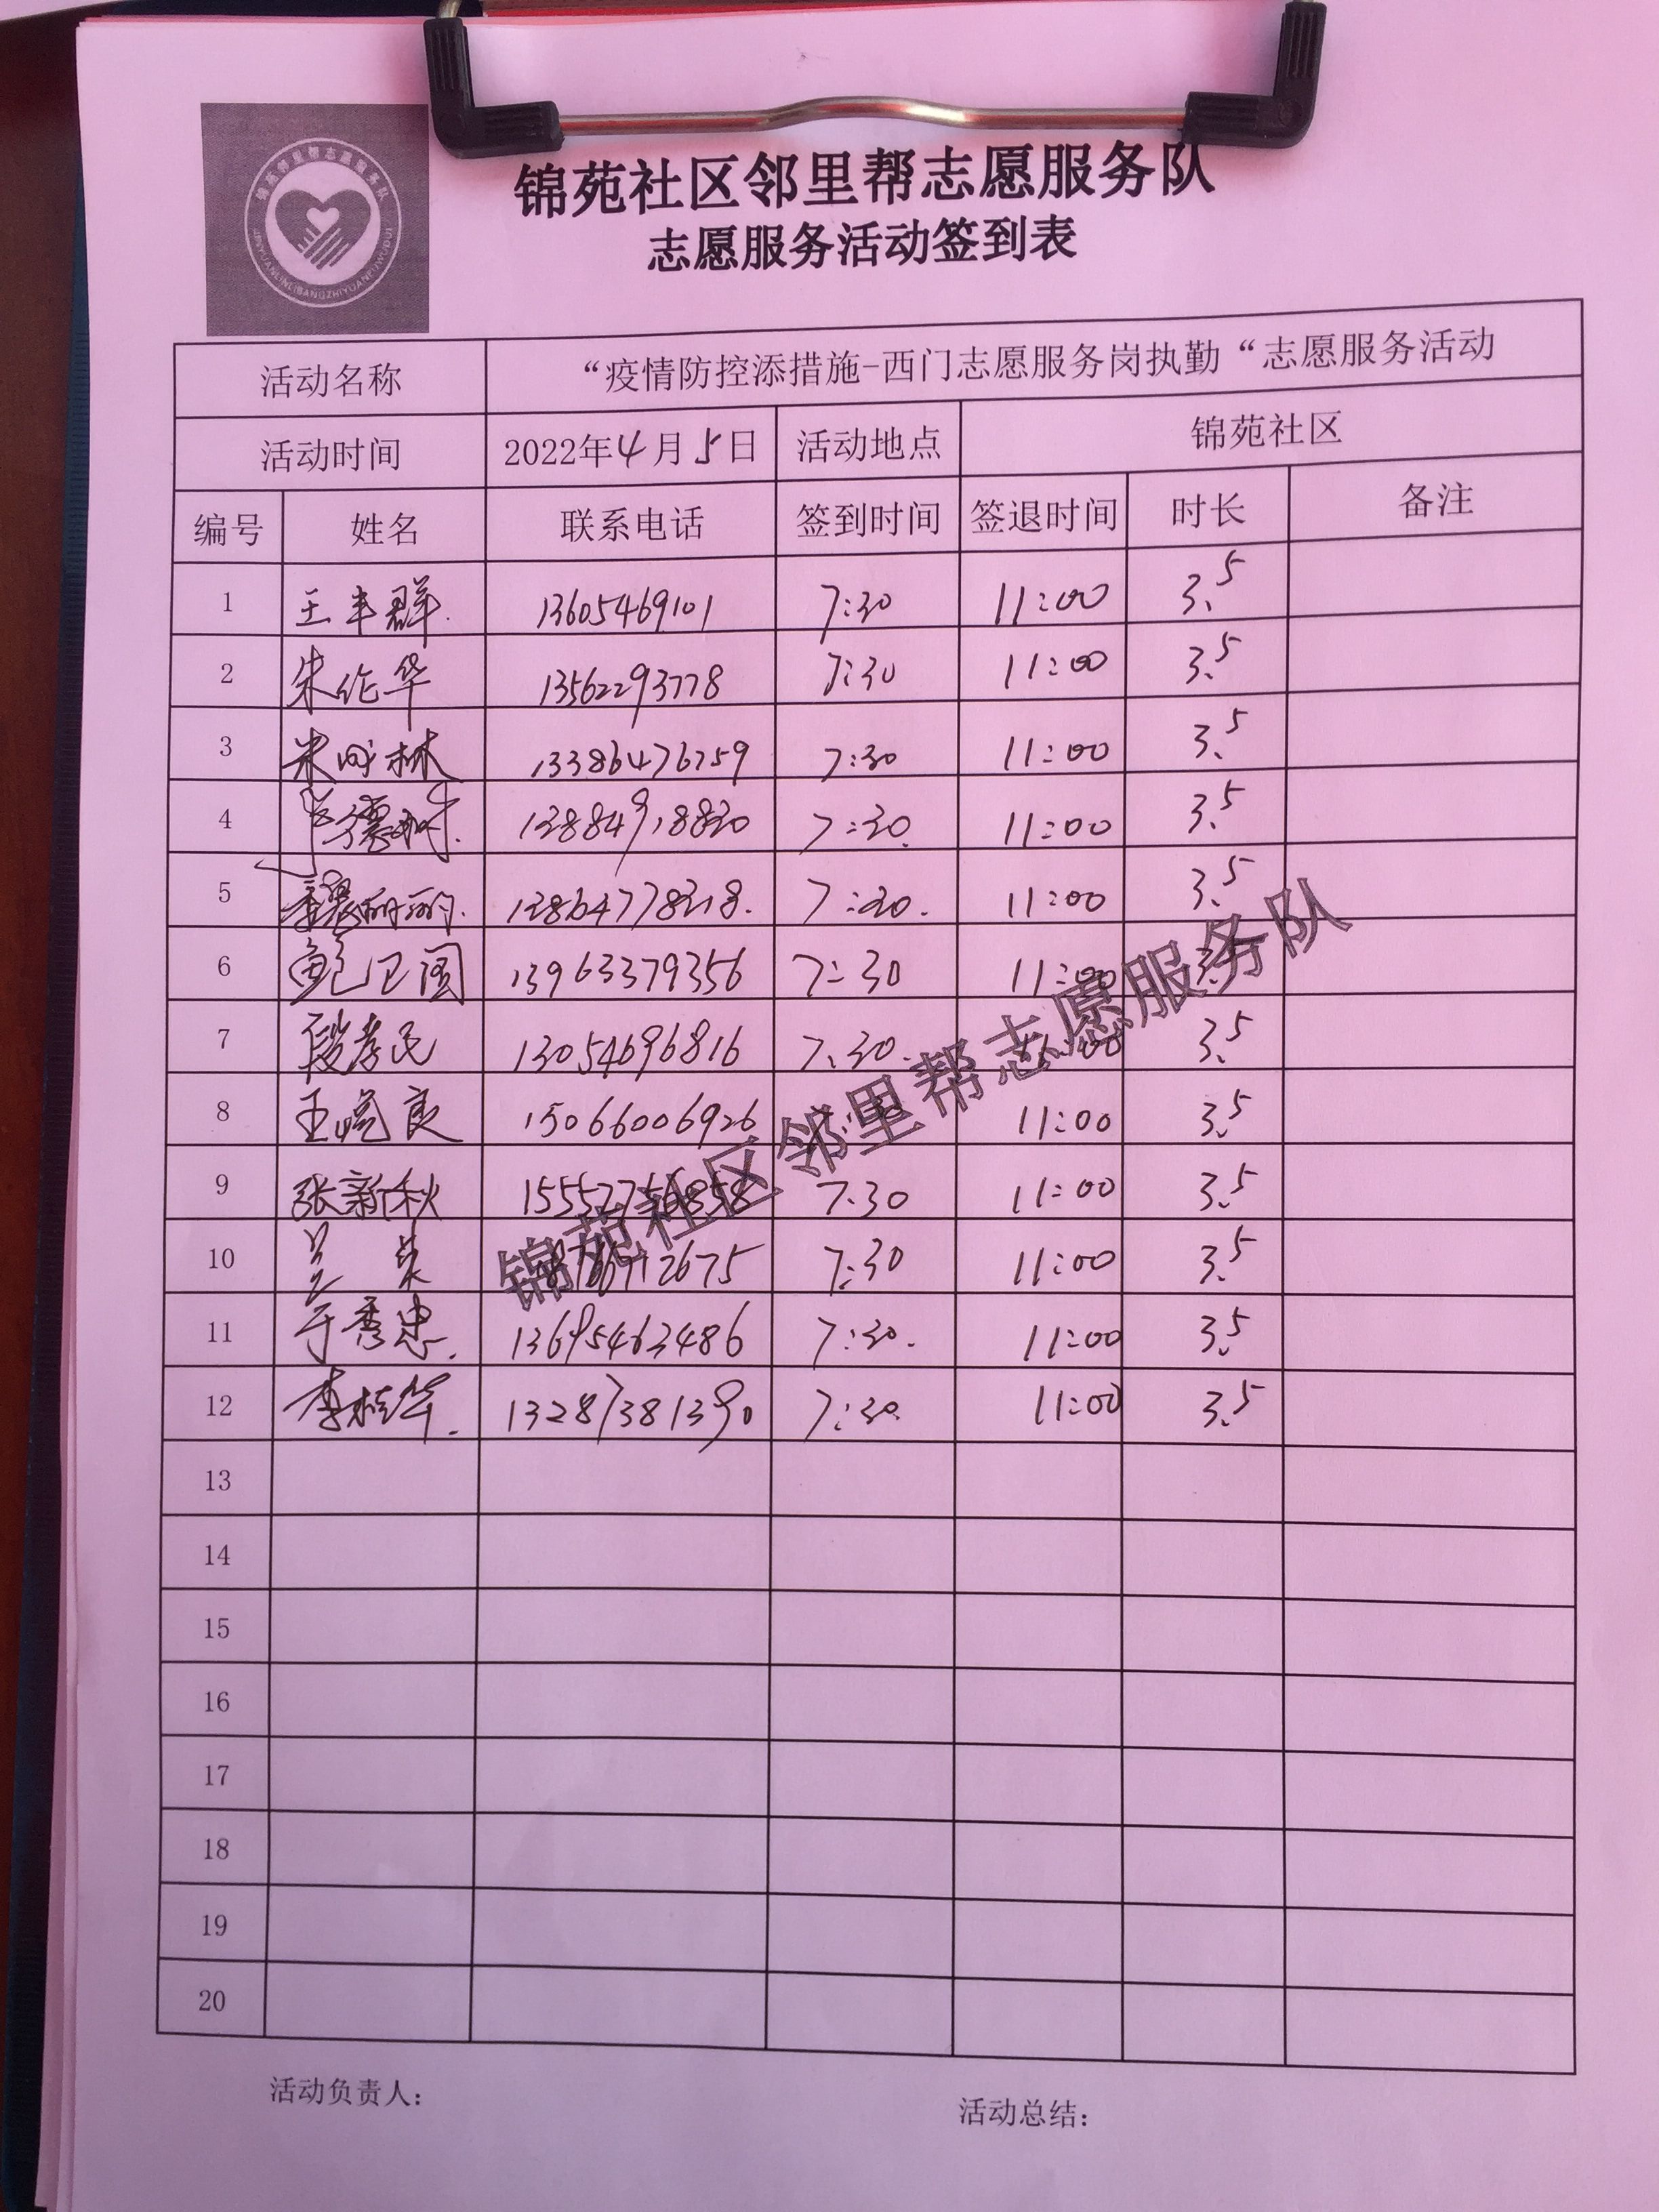 锦苑邻里帮志愿服务队
JINYUANLINLIBANGZHIYUANFUWUDUI
锦苑社区邻里帮志愿服务队
志愿服务活动签到表
活动名称 “疫情防控添措施-西门志愿服务岗执勤“志愿服务活动
活动时间 2022年4月5日 活动地点 锦苑社区
编号 姓名 联系电话 签到时间 签退时间 时长 备注
1 王丰群 13605469101 7:30 11:00 3.5
2 朱作华 13562293778 7:30 11:00 3.5
3 13386476759 7:30 11:00 3.5
4 7:30 11:00 3.5
5 7:30 11:00 3.5
6 鲍卫国 13963379356 7:30 11:00 3.5
7 段孝民 13054696816 7:30 11:00 3.5
8 15066006926 11:00 3.5
9 张新秋 7:30 11:00 3.5
10 7:30 11:00 3.5
11 于秀忠 13695463486 7:30 11:00 3.5
12 李桂华 13287381390 7:30 11:00 3.5
13
14
15
16
17
18
19
20
锦苑社区邻里帮志愿服务队
活动负责人： 活动总结：